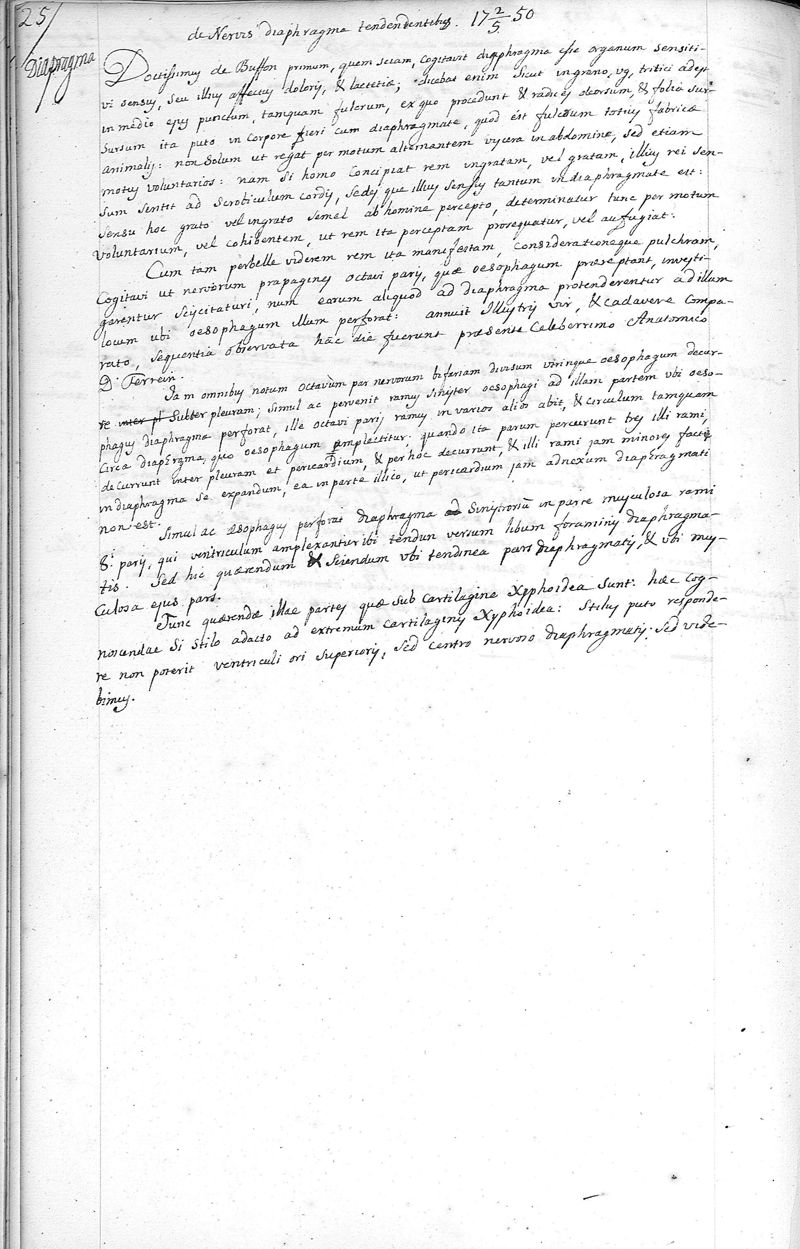 25/
Diapragma
de Nervis diaphragma tendendentibus. 17 2/5 50
Doctissimus de Buffon primum, quem sciam, cogitavit diapphragma esse organum sensiti-
vi sensus, seu illius affectus doloris, & laetetiae; dicebat enim sicut in grano, vg, tritici adest
in medio ejus punctum, tamquam fulcrum, ex quo procedunt & radices deorsum & folia sur-
sursum ita puto in corpore fieri cum diaphragmate, quod est fulcrum totius fabricae
animalis: non solum ut regat per motum alternantem viscera in abdomine, sed etiam
motus voluntarios: nam si homo concipiat rem ingratam, vel gratam, illius rei sen-
sum sentit ad scrobiculum cordis, sedesque illius sensus tantum in diaphragmate est:
sensu hoc grato vel ingrato semel ab homine percepto, determinatur tunc per motum
voluntarium, vel cohibentem, ut rem ita perceptam prosequatur, vel aufugiat.
Cum tam perbelle viderem rem ita manifestam, considerationeque pulchram,
cogitavi ut nervorum prapagines octavi paris, quae oesophagum praeseptant, investi-
garentur scijcitaturi, num earum aliquod ad diaphragma protenderentur ad illum
locum ubi oesophagum illum perforat: annuit Illustris vir, & cadavere compa-
rato, sequentia observata hac die fuerunt praesente Celeberrimo Anatomico
D. Ferrein.
Jam omnibus notum octavum par nervorum bifariam divisum utrinque oesophagum decur-
re inter pl subter pleuram; simul ac pervenit ramus sinister oesophagi ad illam partem ubi oeso-
phagus diaphragma perforat, ille octavi paris ramus in varios alios abit, & circulum tamquam
circa diaphragma, quo oesophagum amplectitur; quando ita parum percurunt tres illi rami,
decurrunt inter pleuram et pericardium, & per hoc decurrunt, & illi rami jam minores facti
in diaphragma se expandunt, ea in parte illico, ut pericardium jam adnexum diaphragmati
non est.
Simul ac oesophagus perforat diaphragma ad sinistrorsum in parte musculosa rami
8i paris, qui ventriculum amplexantur ibi tendunt versum libum foraminis diaphragma-
tis. Sed hic quaerendum & sciendum ubi tendinea pars diaphragmatis, & ubi mus-
culosa ejus pars.
Tunc quaerendae illae partes quae sub cartilagine Xyphoidea sunt: haec cog-
noscendae si stilo adacto ad extremum cartilaginis Xyphoidea: stilus puto responde-
re non poterit ventriculi ori superioris, sed centro nervoso diaphragmatis. Sed vide-
bimus.